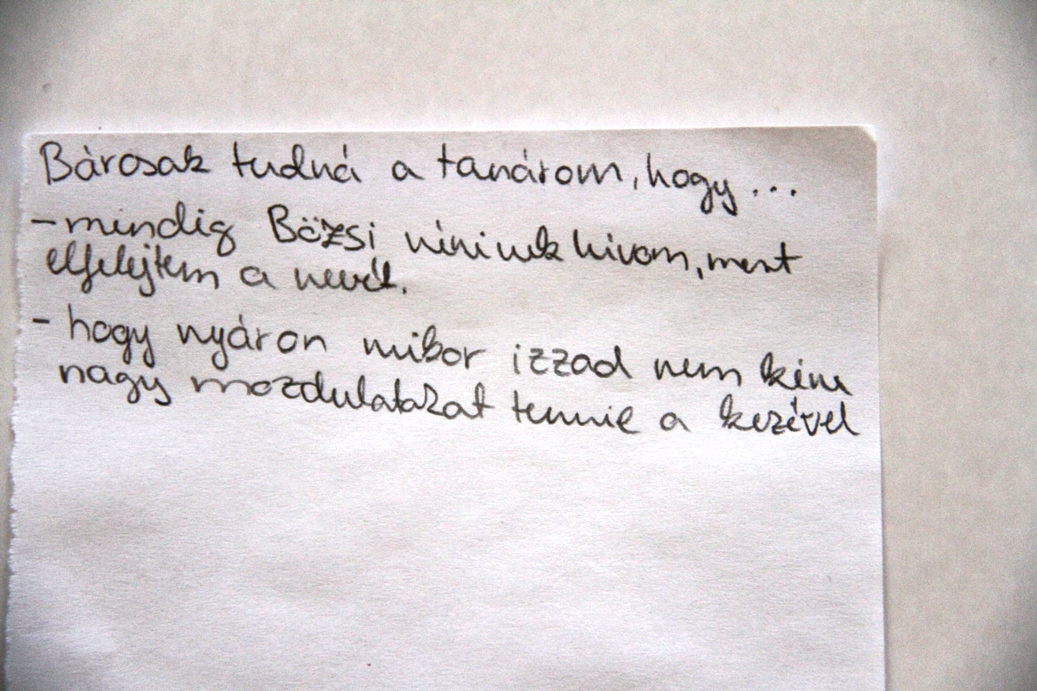 Bárcsak tudná a tanárom, hogy...
- mindig Bözsi néninek hívom, mert
elfelejtem a nevét.
- hogy nyáron mikor izzad nem kéne
nagy mozdulatokat tennie a kezével